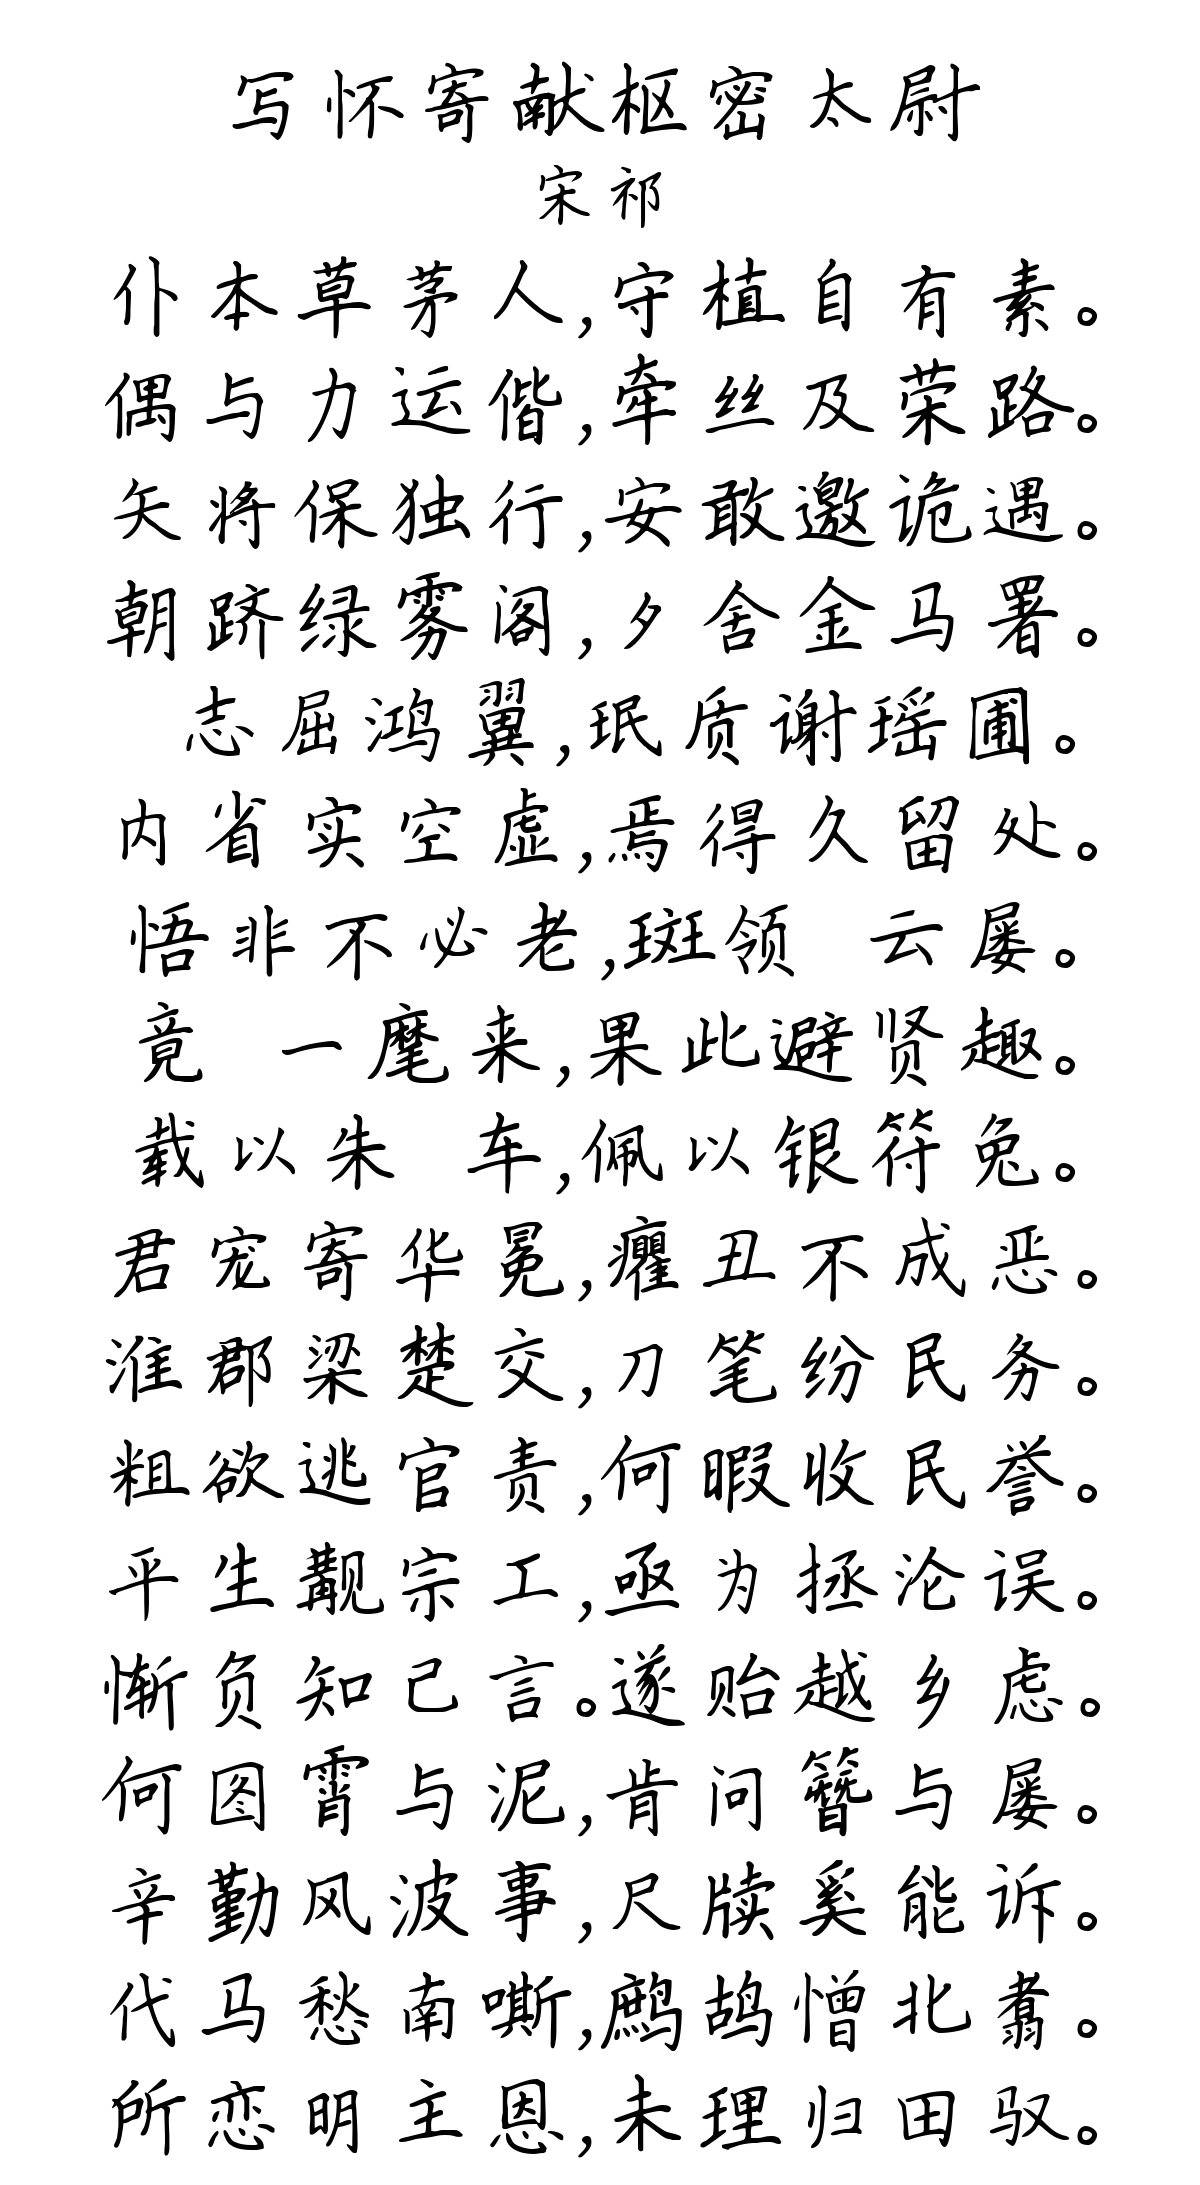 写怀寄献枢密太尉
宋祁
仆本草茅人,守植自有素。
偶与力运偕,牵丝及荣路。
矢将保独行,安敢邀诡遇。
朝跻绿雾阁,夕舍金马署。
志屈鸿翼,珉质谢瑶圃。
内省实空虚,焉得久留处。
悟非不必老,斑领 云屡。
竟 一麾来,果此避贤趣。
载以朱 车,佩以银符兔。
君宠寄华冕,癯丑不成恶。
淮郡梁楚交,刀笔纷民务。
粗欲逃官责,何暇收民誉。
平生觏宗工,亟为拯沦误。
惭负知己言。遂贻越乡虑。
何图霄与泥,肯问簪与屡。
辛勤风波事,尺牍奚能诉。
代马愁南嘶,鹧鸪憎北翥。
所恋明主恩,未理归田驭。